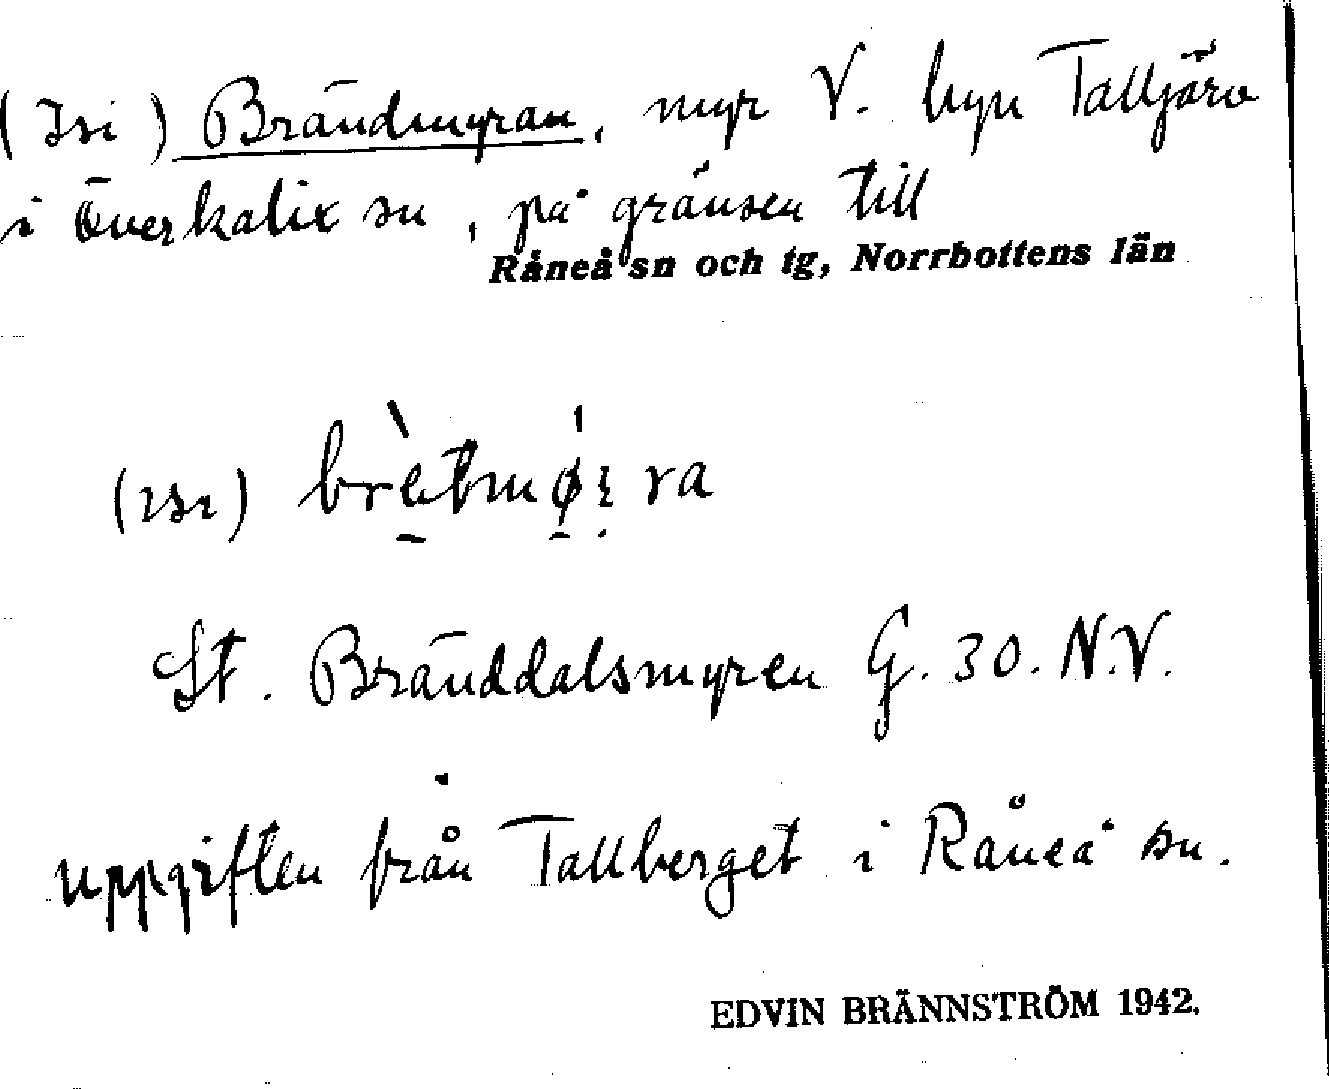 (Isi) Brändmyran, myr V. byn Talljärv
i Överkalix sn, på gränsen till
Råneå sn och tg, Norrbottens län
(ısı)
St. Bränddalsmyren G. 30. N.V.
uppgiften från Tallberget i Råneå sn.
EDVIN BRÄNNSTRÖM 1942.